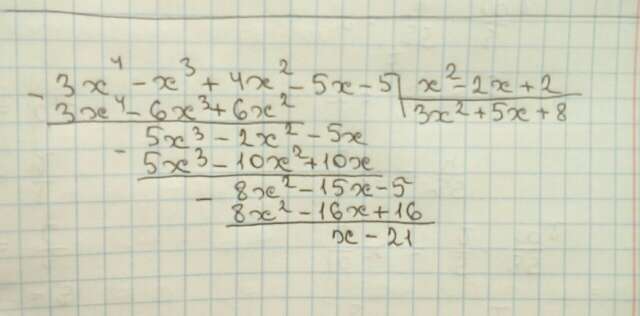 - 3x⁴ - x³ + 4x² - 5x - 5 | x² - 2x + 2
3x⁴ - 6x³ + 6x² | 3x² + 5x + 8
- 5x³ - 2x² - 5x
5x³ - 10x² + 10x
- 8x² - 15x - 5
8x² - 16x + 16
x - 21